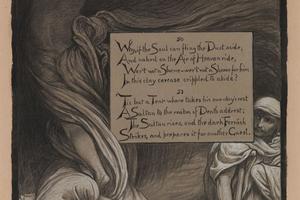 Why, if the Soul can fling the Dust aside,
And naked on the Air of Heaven ride,
Wer't not a Shame – wer't not a Shame for him
In this clay carcase crippled to abide?
'Tis but a Tent where takes his one-day's rest
A Sultan to the realm of Death addrest;
The Sultan rises, and the dark Ferrásh
Strikes, and prepares it for another Guest.